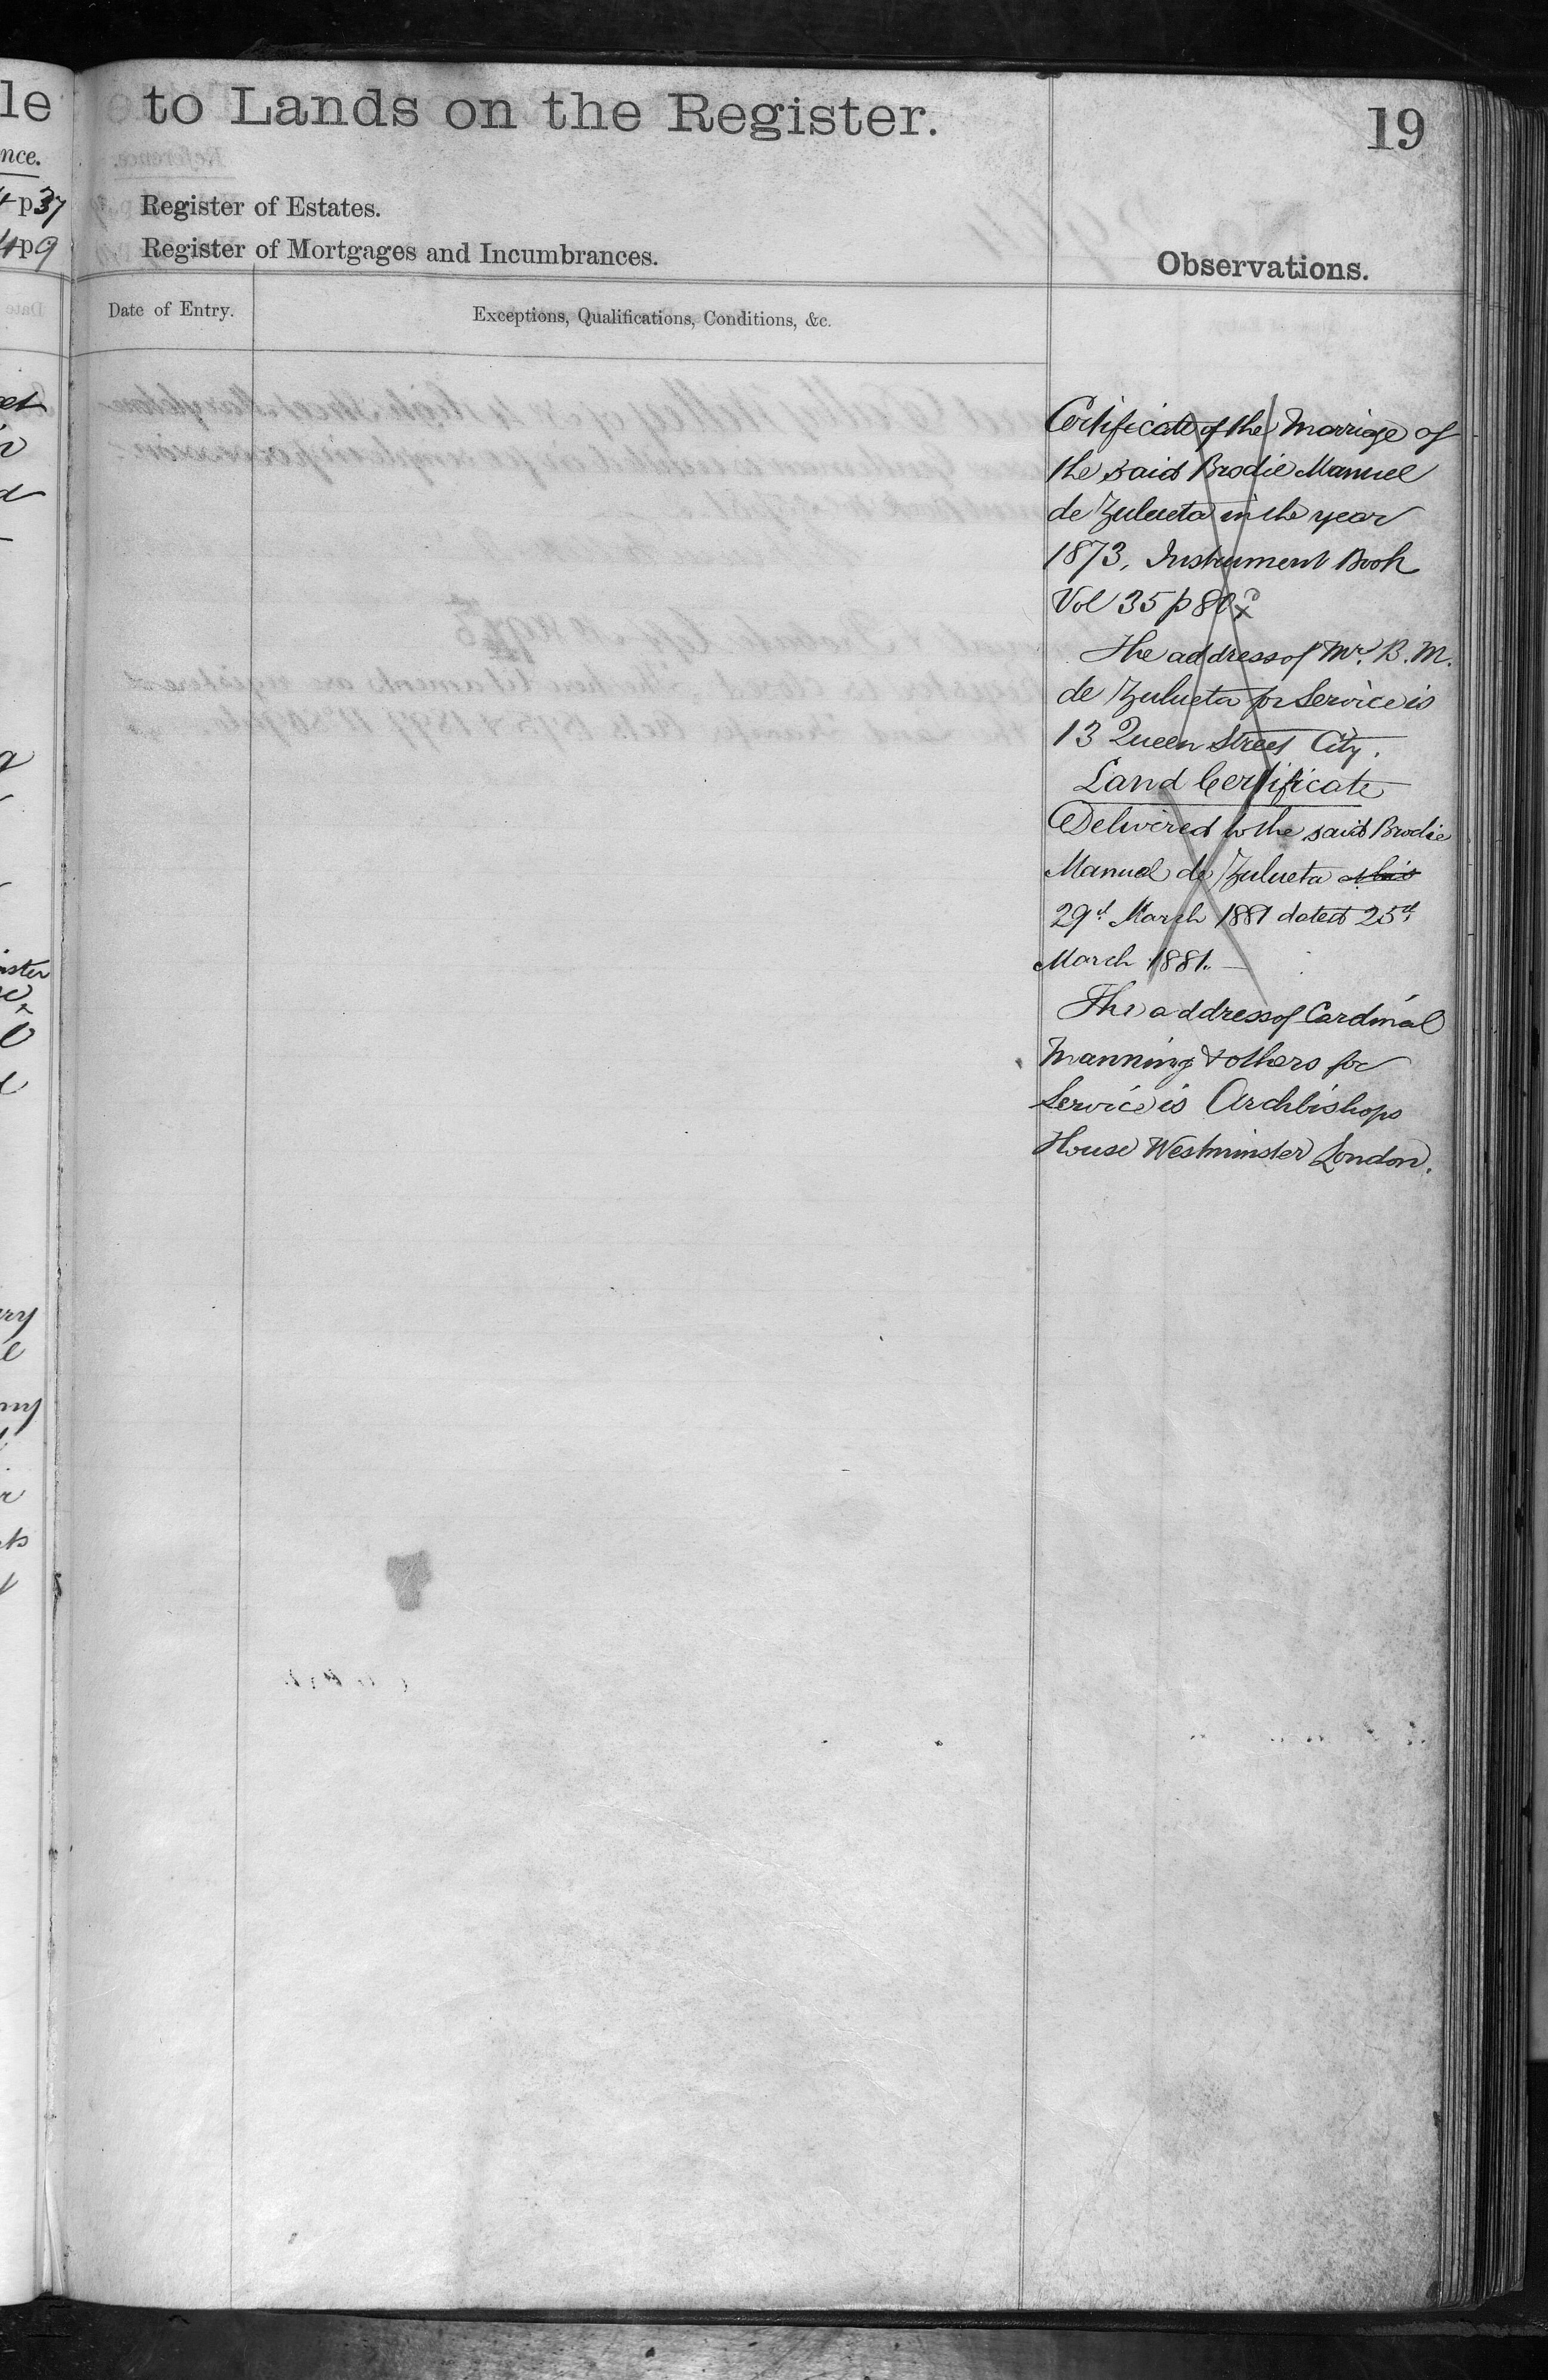 le to Lands on the Register.
19
nce.
p37
Register of Estates.
4p9
Register of Mortgages and Incumbrances.
Observations.
Date of Entry.
Exceptions, Qualifications, Conditions, &c.
Certificate of the Marriage of
the said Brodie Manuel
de Zulueta in the year
1873. Instrument Book
Vol 35 p 80
The address of Mr. B. M.
de Zulueta for Service is
13 Queen Street City.
Land Certificate
Delivered to the said Brodie
Manuel de Zulueta this
29th March 1881 dated 25th
March 1881.
The address of Cardinal
Manning & others for
Service is Archbishops
House Westminster London.